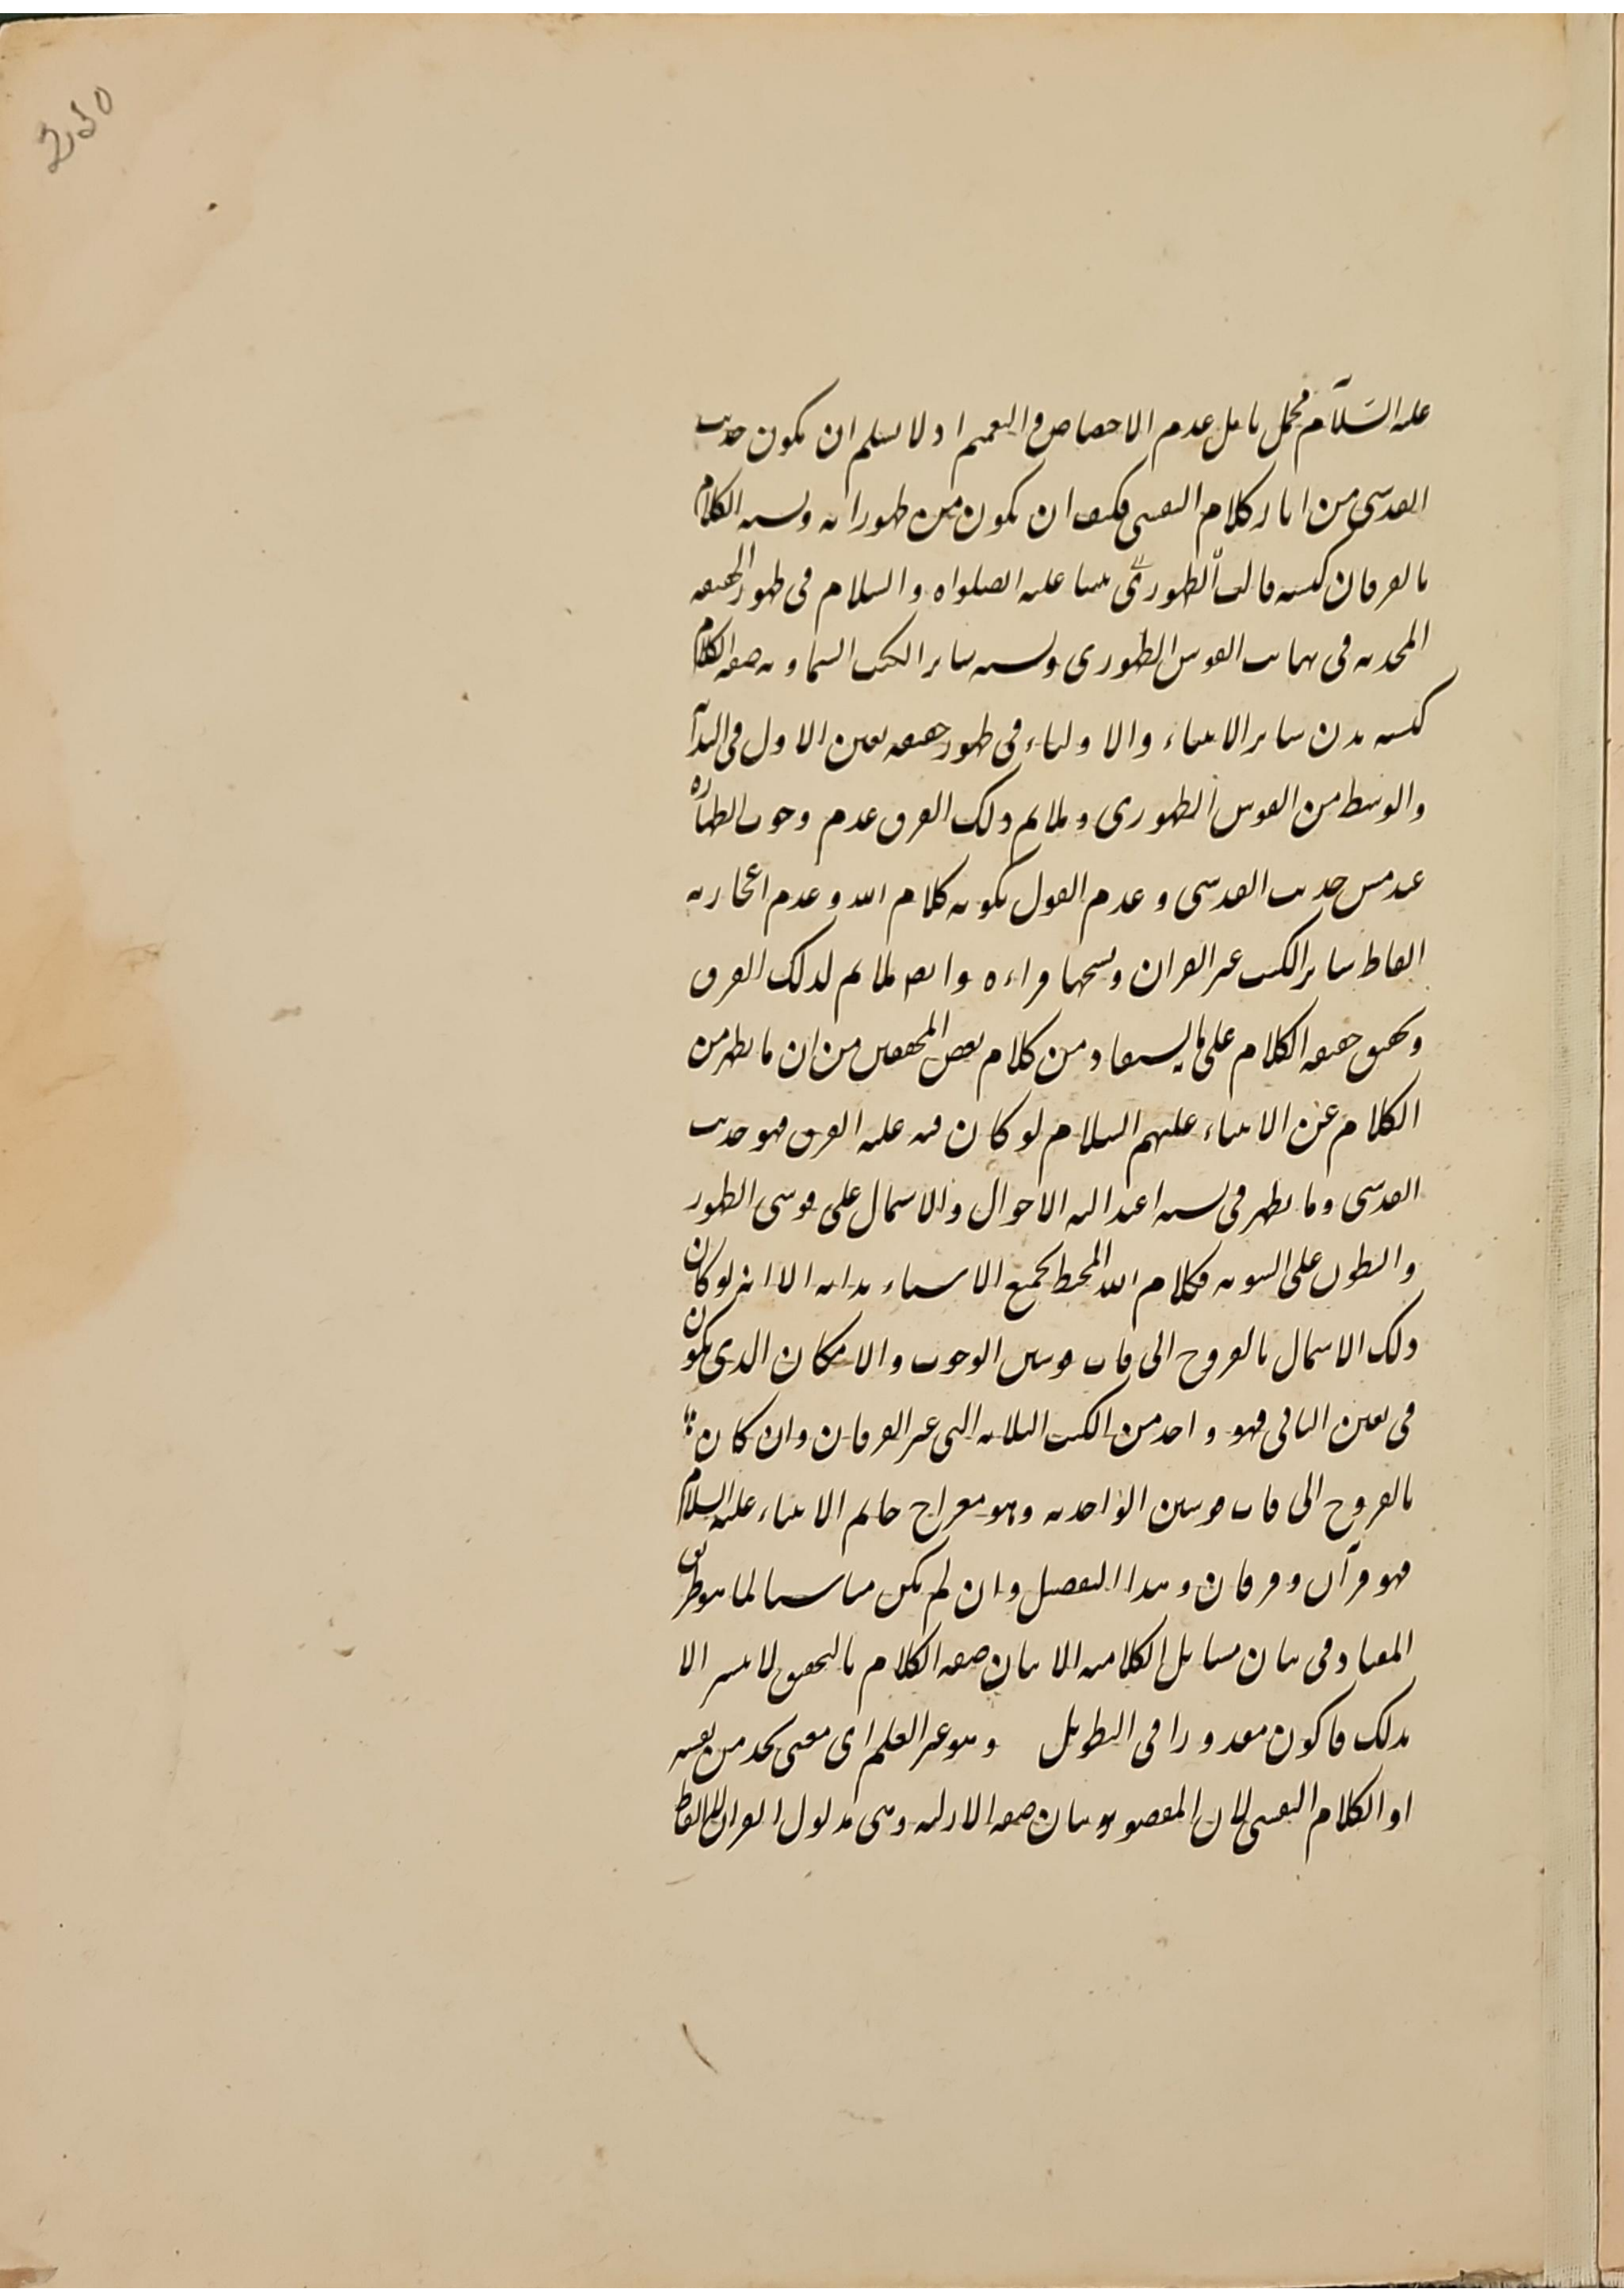 عليه السلام محمل تأمل عدم الاختصاص والتعميم اذ لا نسلم ان يكون حديث
القدسي من اثار كلام النفسي فكيف ان يكون من ظهوراته ونسبة الكلام
بالفرقان كنسبة قالب الظهوري نبينا عليه الصلواة والسلام في ظهور الحقيقة
المحمدية في نهايت القوس الظهوري ونسبة ساير الكتب السماوية صفة الكلام
كنسبة بدن ساير الانبياء والاولياء في ظهور حقيقة تعين الاول في البدآية
والوسط من القوس الظهوري وملايم ذلك الفرق عدم وجوب الطهارة
عند مس حديث القدسي وعدم القول بكونه كلام الله وعدم اعجازية
الفاظ ساير الكتب غير القران ونسخها قراءة وايض ملايم لذلك الفرق
وتحقيق حقيقة الكلام على ما يستفاد من كلام بعض المحققين من ان ما يظهر من
الكلام عن الانبياء عليهم السلام لو كان فيه غلبة الفرق فهو حديث
القدسي وما يظهر في نسبة اعتدالية الاحوال والاشتمال على قوسي الظهور
والبطون على السوية فكلام الله المحيط بجميع الاسماء بذاته الا انه لو كان
ذلك الاشتمال بالعروج الى قاب قوسين الوجوب والامكان الذي يكون
في تعين الثاني فهو واحد من الكتب الثلاثة التي غير الفرقان وان كان
بالعروج الى قاب قوسين الواحدية وهو معراج خاتم الانبياء عليه السلام
فهو قرآن وفرقان وهذا التفصيل وان لم يكن مناسبا لما هو طريق
المعتاد في بيان مسايل الكلامية الا ان بيان صفة الكلام بالتحقيق لا يتيسر الا
بذلك فاكون معذورا في التطويل وهو غير العلم اى معنى يجد من نفسه
او الكلام النفسي لان المقصود بيان صفة الازلية وهي مدلول القران لا الالفاظ